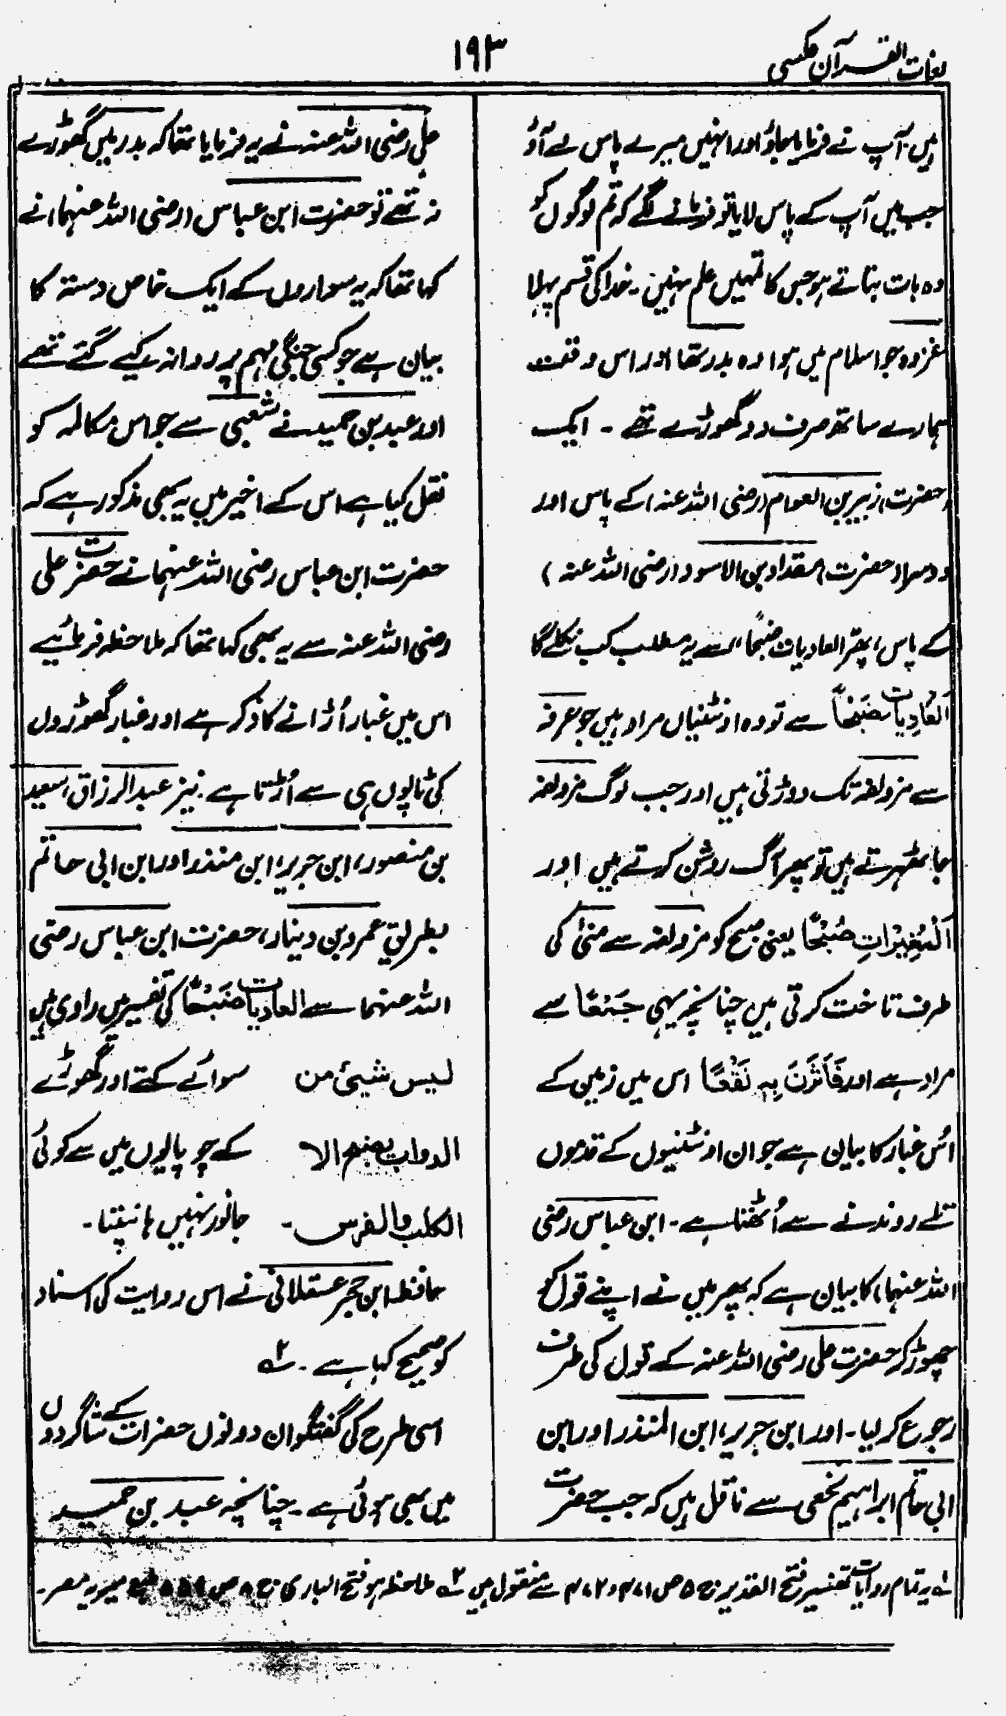 لغات القرآن عکسی
۱۹۳
ہیں، آپ نے فرمایا جاؤ اور انہیں میرے پاس لے آؤ
جب میں آپ کے پاس لایا تو فرمانے لگے کہ تم لوگوں کو
وہ بات بتاتے ہو جس کا تمہیں علم نہیں۔ خدا کی قسم پہلا
غزوہ جو اسلام میں ہوا وہ بدر تھا اور اس وقت
ہمارے ساتھ صرف دو گھوڑے تھے۔ ایک
(حضرت) زبیر بن العوام (رضی اللہ عنہ) کے پاس اور
دوسرا (حضرت) مقداد بن الاسود (رضی اللہ عنہ)
کے پاس، پھر العادیات ضبحًا، سے یہ مطلب کب نکلے گا
اَلعَادِیات ضَبْحًا سے تو وہ اونٹنیاں مراد ہیں جو عرفہ
سے مزدلفہ تک دوڑتی ہیں اور جب لوگ مزدلفہ
جا ٹھہرتے ہیں تو پھر آگ روشن کرتے ہیں اور
اَلْمُغِیْرَاتِ صُبْحًا یعنی صبح کو مزدلفہ سے منیٰ کی
طرف تاخت کرتی ہیں چنانچہ یہی جَمْعًا سے
مراد ہے اور فَاَثَرْنَ بِہٖ نَقْعًا اس میں زمین کے
اُس غبار کا بیان ہے جو ان اونٹنیوں کے قدموں
تلے روندنے سے اُٹھتا ہے۔ ابن عباس (رضی
اللہ عنہما) کا بیان ہے کہ پھر میں نے اپنے قول کو
چھوڑ کر حضرت علی رضی اللہ عنہ کے قول کی طرف
رجوع کر لیا۔ اور ابن جریر، ابن المنذر اور ابن
ابی حاتم ابراہیم نخعی سے ناقل ہیں کہ جب حضرت
علی رضی اللہ عنہ نے یہ فرمایا تھا کہ بدر میں گھوڑے
نہ تھے تو حضرت ابن عباس (رضی اللہ عنہما) نے
کہا تھا کہ یہ سواروں کے ایک خاص دستہ کا
بیان ہے جو کسی جنگی مہم پر روانہ کیے گئے تھے
اور عبد بن حمید نے شعبی سے جو اس مکالمہ کو
نقل کیا ہے اس کے اخیر میں یہ بھی مذکور ہے کہ
حضرت ابن عباس رضی اللہ عنہما نے حضرت علی
رضی اللہ عنہ سے یہ بھی کہا تھا کہ ملاحظہ فرمائیے
اس میں غبار اُڑانے کا ذکر ہے اور غبار گھوڑوں
کی ٹاپوں ہی سے اُڑتا ہے۔ نیز عبدالرزاق، سعید
بن منصور، ابن جریر، ابن منذر اور ابن ابی حاتم
بطریق عمرو بن دینار، حضرت ابن عباس رضی
اللہ عنہما سے العادیات ضَبْحًا کی تفسیر میں راوی ہیں
لیس شیئ من سوائے کتے اور گھوڑے
الدواب یضبع الا کے چوپایوں میں سے کوئی
الکلب والفرس۔ جانور نہیں ہانپتا۔
حافظ ابن حجر عسقلانی نے اس روایت کی اسناد
کو صحیح کہا ہے۔ ۲ہ
اسی طرح کی گفتگو ان دونوں حضرات کے شاگردوں
میں بھی ہوئی ہے۔ چنانچہ عبد بن حمید
۱ہ یہ تمام روایات تفسیر فتح القدیر ج ۵ ص ۴۷۱ و ۴۷۲ سے منقول ہیں ۲ہ ملاحظہ ہو فتح الباری ج ۸ ص ۵۵۹ طبع میریہ مصر۔